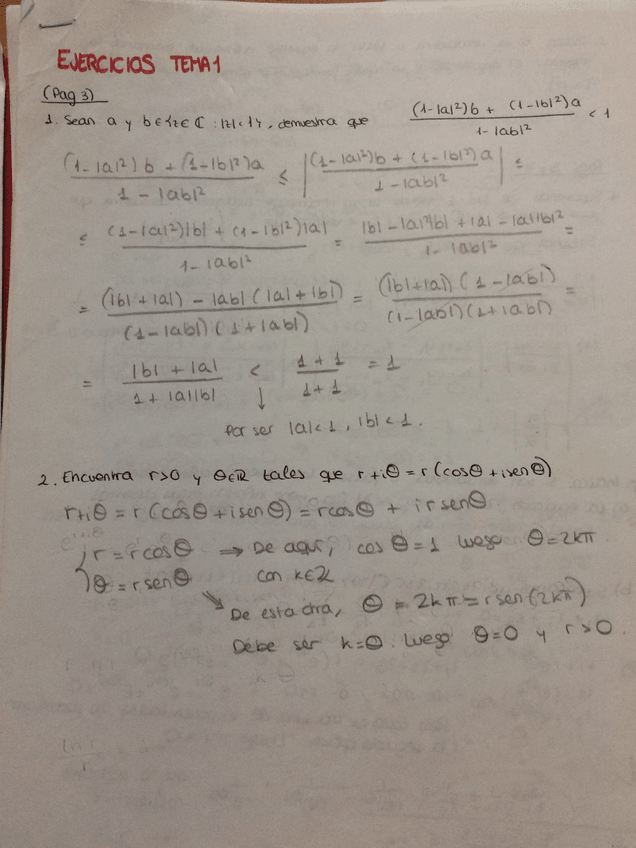 EJERCICIOS TEMA 1
(Pag 3)
1. Sean a y b ∈ {z ∈ ℂ : |z| < 1}, demuestra que ((1-|a|²)b + (1-|b|²)a) / (1-|ab|²) < 1
((1-|a|²)b + (1-|b|²)a) / (1-|ab|²) ≤ |((1-|a|²)b + (1-|b|²)a) / (1-|ab|²)| ≤
≤ ((1-|a|²)|b| + (1-|b|²)|a|) / (1-|ab|²) = (|b| - |a|²|b| + |a| - |a||b|²) / (1-|ab|²) =
= ((|b|+|a|) - |ab|(|a|+|b|)) / ((1-|ab|)(1+|ab|)) = ((|b|+|a|)(1-|ab|)) / ((1-|ab|)(1+|ab|)) =
= (|b|+|a|) / (1+|a||b|) < (1+1) / (1+1) = 1
↓
Por ser |a|<1, |b|<1.
2. Encuentra r>0 y θ∈ℝ tales que r+iθ = r(cosθ + isenθ)
r+iθ = r(cosθ + isenθ) = rcosθ + irsenθ
{ r = rcosθ ⇒ De aquí, cosθ = 1 luego θ = 2kπ
θ = rsenθ con k∈ℤ
↘ De esta otra, θ = 2kπ = rsen(2kπ)
Debe ser k=0. Luego θ=0 y r>0.